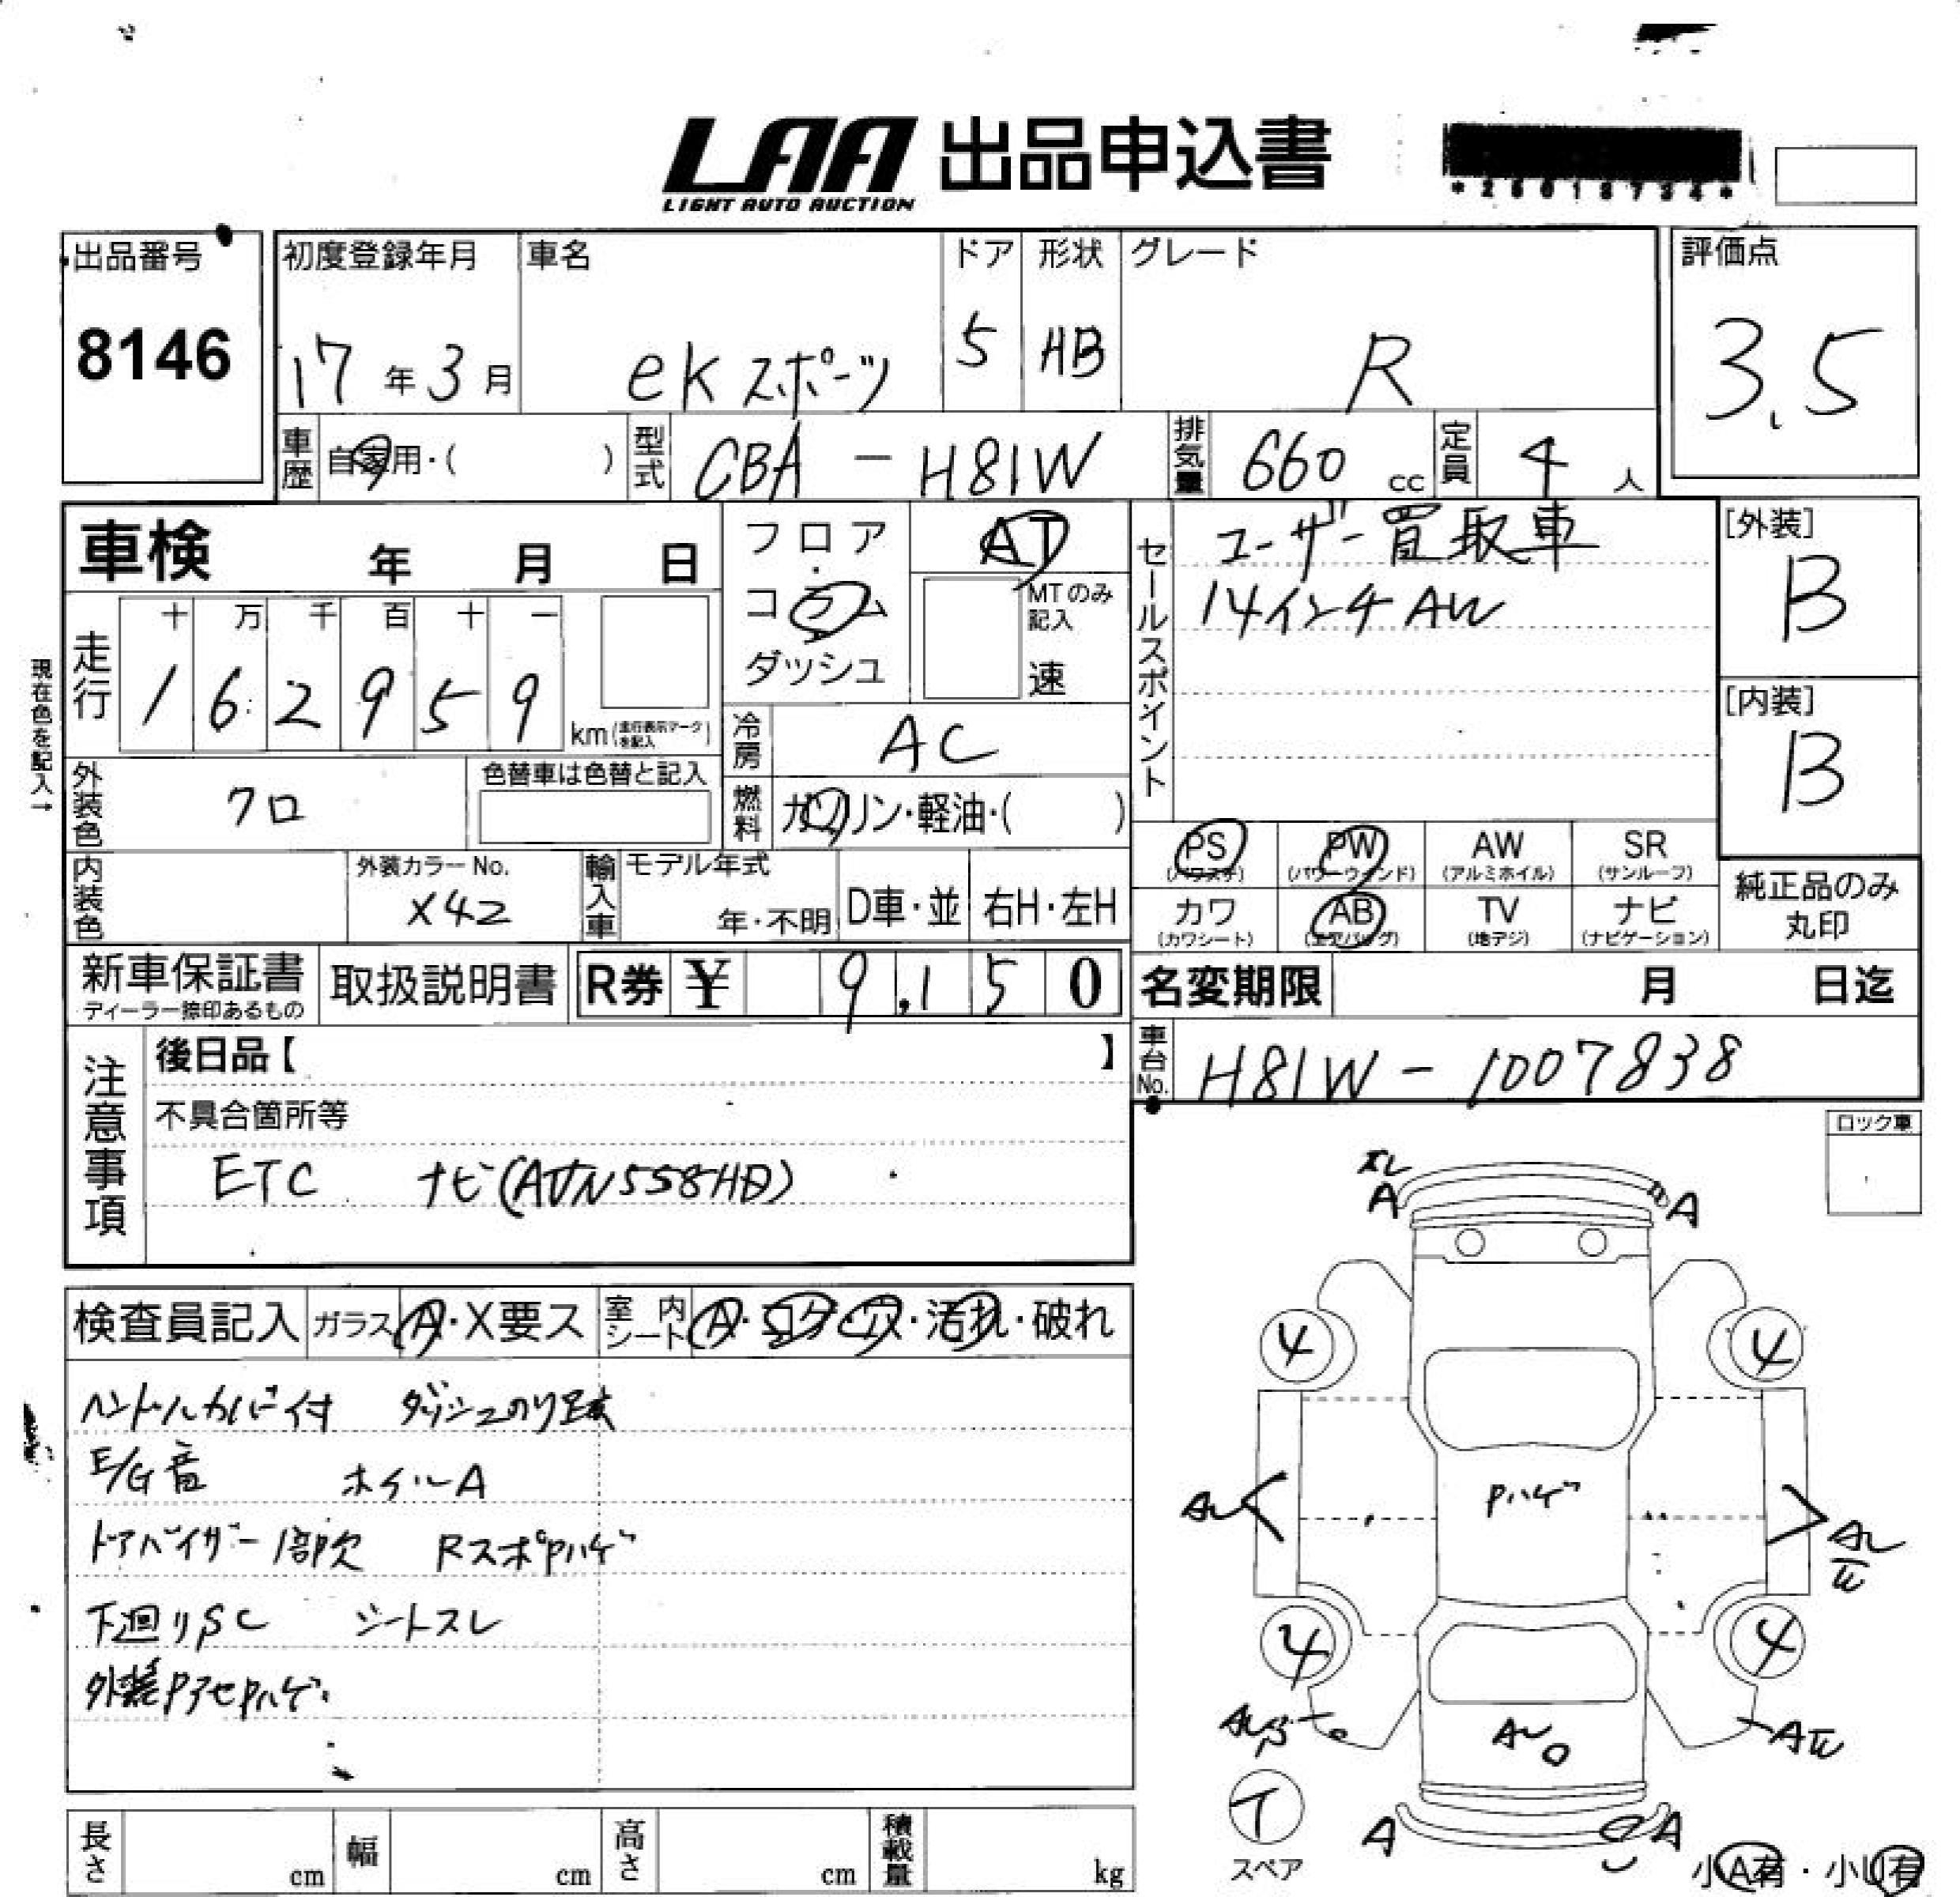 LAA 出品申込書
LIGHT AUTO AUCTION
出品番号
8146
初度登録年月
17年3月
車名
eKスポーツ
ドア
5
形状
HB
グレード
R
評価点
3.5
車歴
自家用・( )
型式
CBA-H81W
排気量
660 cc
定員
4人
車検 年 月 日
現在色を記入→
走行
十 万 千 百 十 一
1 6 2 9 5 9
km(走行表示マークを記入)
フロア
コラム
ダッシュ
AT
MTのみ記入
速
冷房
AC
燃料
ガソリン・軽油・( )
外装色
クロ
色替車は色替と記入
内装色
外装カラーNo.
X42
輸入車
モデル年式
年・不明
D車・並
右H・左H
セールスポイント
ユーザー買取車
14インチAW
[外装]
B
[内装]
B
PS (パワステ)
PW (パワーウィンド)
AW (アルミホイル)
SR (サンルーフ)
カワ (カワシート)
AB (エアバッグ)
TV (地デジ)
ナビ (ナビゲーション)
純正品のみ
丸印
新車保証書
ディーラー捺印あるもの
取扱説明書
R券 ¥ 9,150
名変期限 月 日迄
車台No.
H81W-1007838
注意事項
後日品【 】
不具合箇所等
ETC ナビ(AVN558HD)
ロック車
検査員記入
ガラス A・X要ス
室内シート A・コゲ・穴・汚れ・破れ
ハンドルカバー付 ダッシュのり跡
E/G音 ホイルA
ドアバイザー1部欠 RスポPハゲ
下回りSC シートスレ
外装Pアセ Pハゲ
A
A
4
4
Pハゲ
4
4
T
スペア
A
A
小A有・小U有
長さ cm
幅 cm
高さ cm
積載量 kg